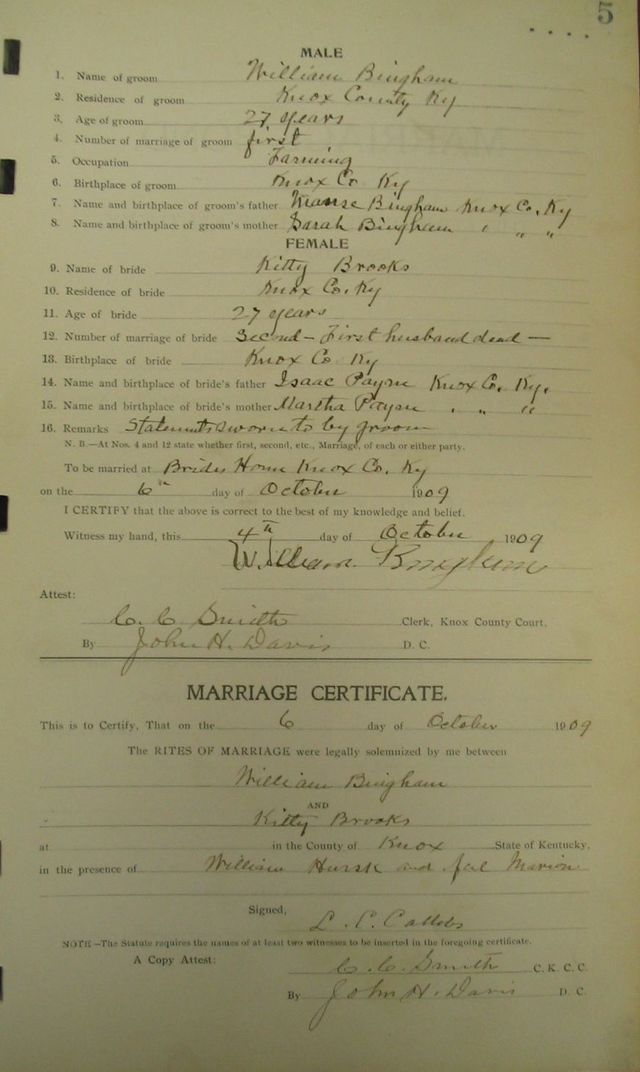 5
MALE
1. Name of groom William Bingham
2. Residence of groom Knox County Ky
3. Age of groom 27 years
4. Number of marriage of groom first
5. Occupation Farming
6. Birthplace of groom Knox Co Ky
7. Name and birthplace of groom's father Bingham Knox Co, Ky
8. Name and birthplace of groom's mother Sarah Bingham " " "
FEMALE
9. Name of bride Kitty Brooks
10. Residence of bride Knox Co. Ky
11. Age of bride 27 years
12. Number of marriage of bride Second - First husband dead -
13. Birthplace of bride Knox Co Ky
14. Name and birthplace of bride's father Isaac Payne Knox Co, Ky.
15. Name and birthplace of bride's mother Martha Payne " " "
16. Remarks Statements sworn to by groom
N. B.—At Nos. 4 and 12 state whether first, second, etc., Marriage, of each or either party.
To be married at Brides Home Knox Co. Ky
on the 6th day of October 1909
I CERTIFY that the above is correct to the best of my knowledge and belief.
Witness my hand, this 4th day of October 1909
William Bingham
Attest:
C. C. Smith Clerk, Knox County Court.
By John H. Davis D. C.
MARRIAGE CERTIFICATE.
This is to Certify, That on the 6 day of October 1909
The RITES OF MARRIAGE were legally solemnized by me between
William Bingham
AND
Kitty Brooks
at in the County of Knox State of Kentucky,
in the presence of William and Marion
Signed,
L. C.
NOTE—The Statute requires the names of at least two witnesses to be inserted in the foregoing certificate.
A Copy Attest: C. C. Smith C. K. C. C.
By John H. Davis D. C.